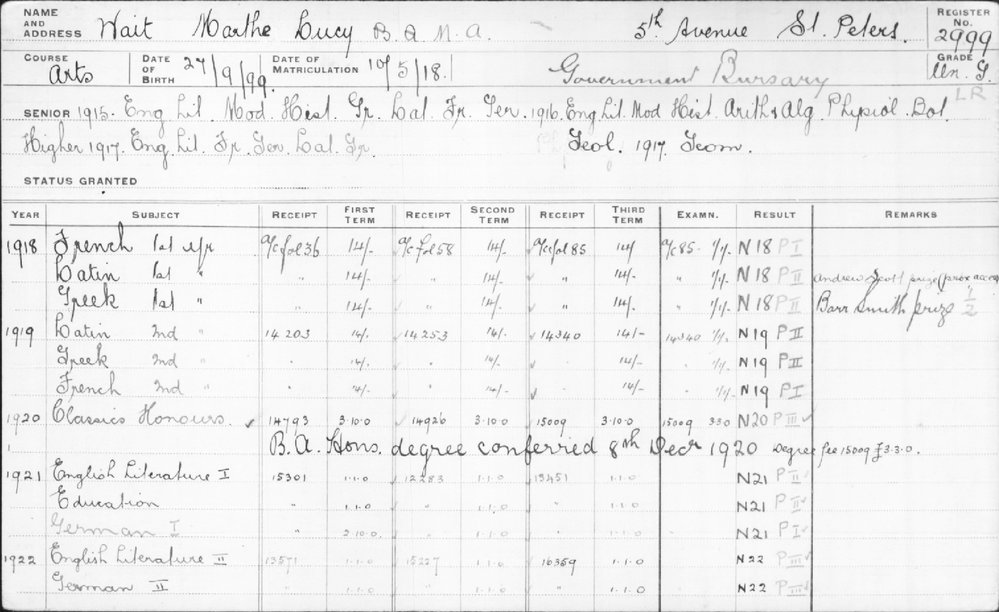 NAME AND ADDRESS Wait Marthe Lucy B.A. M.A. 5th Avenue St. Peters. REGISTER No. 2999
COURSE Arts DATE OF BIRTH 27/9/99. DATE OF MATRICULATION 10/5/18. Government Bursary GRADE Un. G.
LR
SENIOR 1915. Eng Lit. Mod. Hist. Gr. Lat. Fr. Ger. 1916. Eng Lit. Mod Hist. Arith & Alg. Physiol. Bot.
Higher 1917. Eng. Lit. Fr. Ger. Lat. Gr. Geol. 1917. Geom.
STATUS GRANTED
YEAR SUBJECT RECEIPT FIRST TERM RECEIPT SECOND TERM RECEIPT THIRD TERM EXAMN. RESULT REMARKS
1918 French 1st yr a/c fol 36 14/- a/c fol 58 14/- a/c fol 85 14/ a/c 85 1/1/. N 18 P I
Latin 1st " " 14/- " 14/- " 14/- " 1/1/. N 18 P II Andrew Scott prize (prox. acc.)
Greek 1st " " 14/- " 14/- " 14/- " 1/1/. N 18 P II Barr Smith prize 1/2
1919 Latin 2nd " 14203 14/. 14253 14/. 14340 14/- 14340 1/1/. N 19 P II
Greek 2nd " " 14/. " 14/. " 14/- " 1/1/. N 19 P II
French 2nd " " 14/- " 14/- " 14/- " 1/1/. N 19 P I
1920 Classics Honours. ✓ 14793 3.10.0 14926 3.10.0 15009 3.10.0 15009 3.3.0 N20 P III ✓
B.A. Hons. degree conferred 8th Decr 1920 Degree fee 15009 £3.3.0.
1921 English Literature I 15301 1.1.0 12283 1.1.0 13451 1.1.0 N21 P II ✓
Education " 1.1.0 " 1.1.0 " 1.1.0 N21 P II ✓
German I " 2.10.0 " 1.1.0 " 1.1.0 N21 P I ✓
1922 English Literature II 13571 1.1.0 15227 1.1.0 16359 1.1.0 N22 P III ✓
German II " 1.1.0 " 1.1.0 " 1.1.0 N22 P III ✓